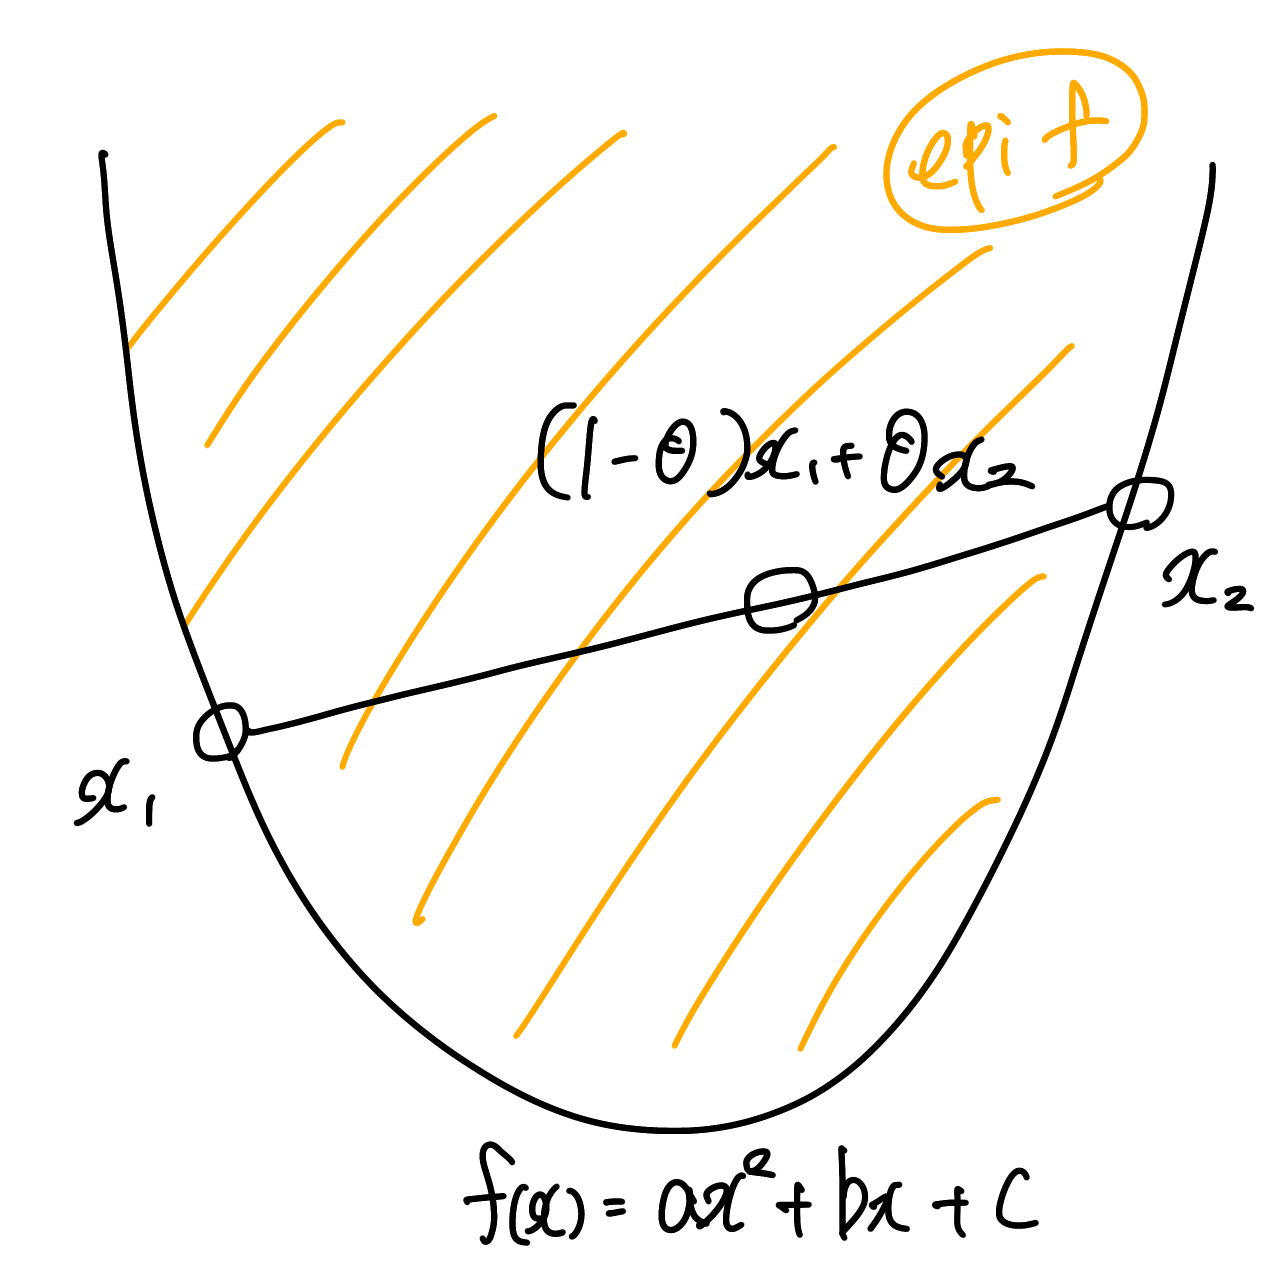 epi f
(1-θ)x₁+θx₂
x₂
x₁
f(x)=ax²+bx+c